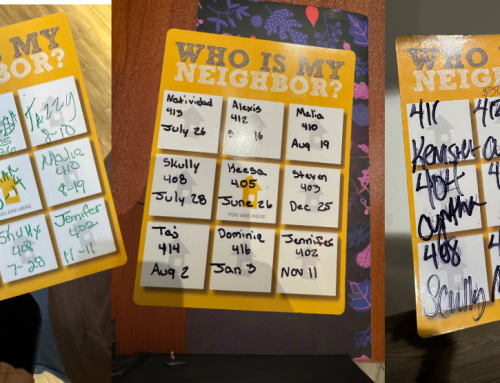 IS MY
BOR?
Jazzy
8-10
Malia
410
8-19
Skully
408
7-28
Jennifer
402
11-11
WHO IS MY
NEIGHBOR?
Natividad
413
July 26
Alexis
412
16
Malia
410
Aug 19
Skully
408
July 28
Keesa
405
June 26
YOU ARE HERE
Steven
403
Dec 25
Taj
414
Aug 2
Dominic
416
Jan 3
Jennifer
402
Nov 11
WHO
NEIGH
411
412
404
Cynthia
408
Scully